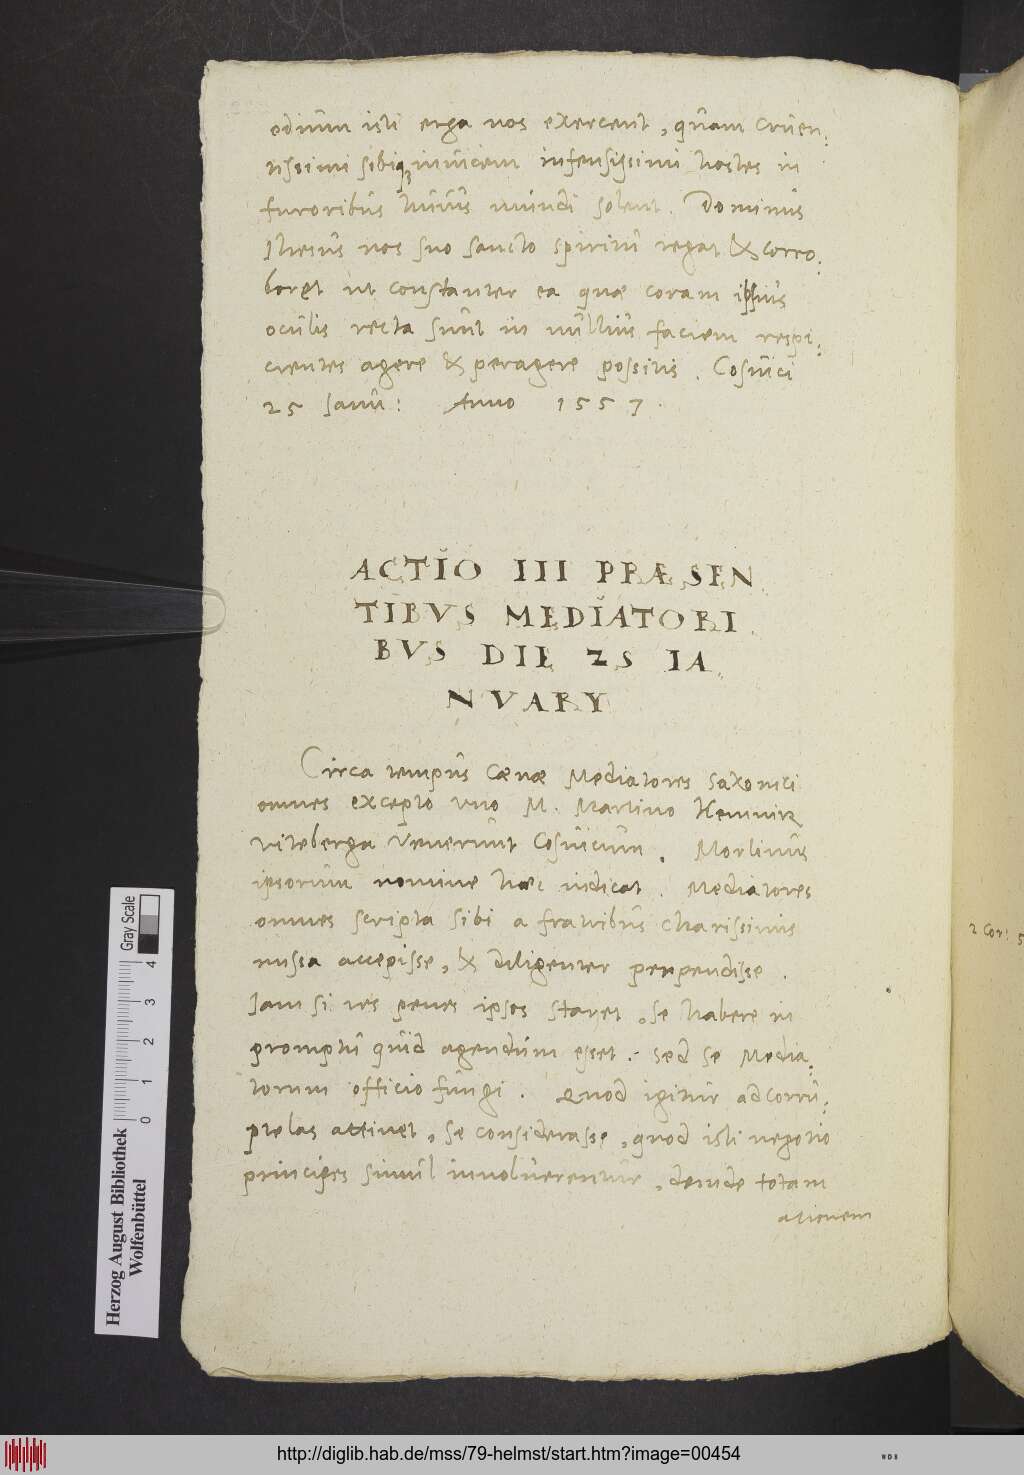 odium isti erga nos exercent, quam cruen:
tissimi sibiq₃ inuicem infensissimi hostes in
furoribus huius mundi solent. Dominus
Jhesus nos suo sancto spiritu regat & corro:
boret ut constanter ea quae coram ipsius
oculis recta sunt in nullius faciem respi:
cientes agere & peragere possitis. Cosuici
25 Janu: Anno 1557.
ACTIO III PRÆSEN
TIBVS MEDIATORI
BVS DIE 25 IA
NVARY
Circa tempus cænæ Mediatores Saxonici
omnes excepto uno M. Martino Kemnitz
Viteberga Venerunt Cosuicum. Morlinus
ipsorum nomine haec indicat. Mediatores
omnes scripta sibi a fratribus charissimis
missa accepisse, & diligenter perpendisse.
Jam si res penes ipsos staret, se habere in
promptu quid agendum esset. sed se Media:
torum officio fungi. Quod igitur ad corru:
ptelas attinet, se considerasse, quod isti negotio
principes simul inuoluerentur, deinde totam
ationem
2 Cor: 5
Herzog August Bibliothek
Wolfenbüttel
0 1 2 3 4
Gray Scale
http://diglib.hab.de/mss/79-helmst/start.htm?image=00454
WDB